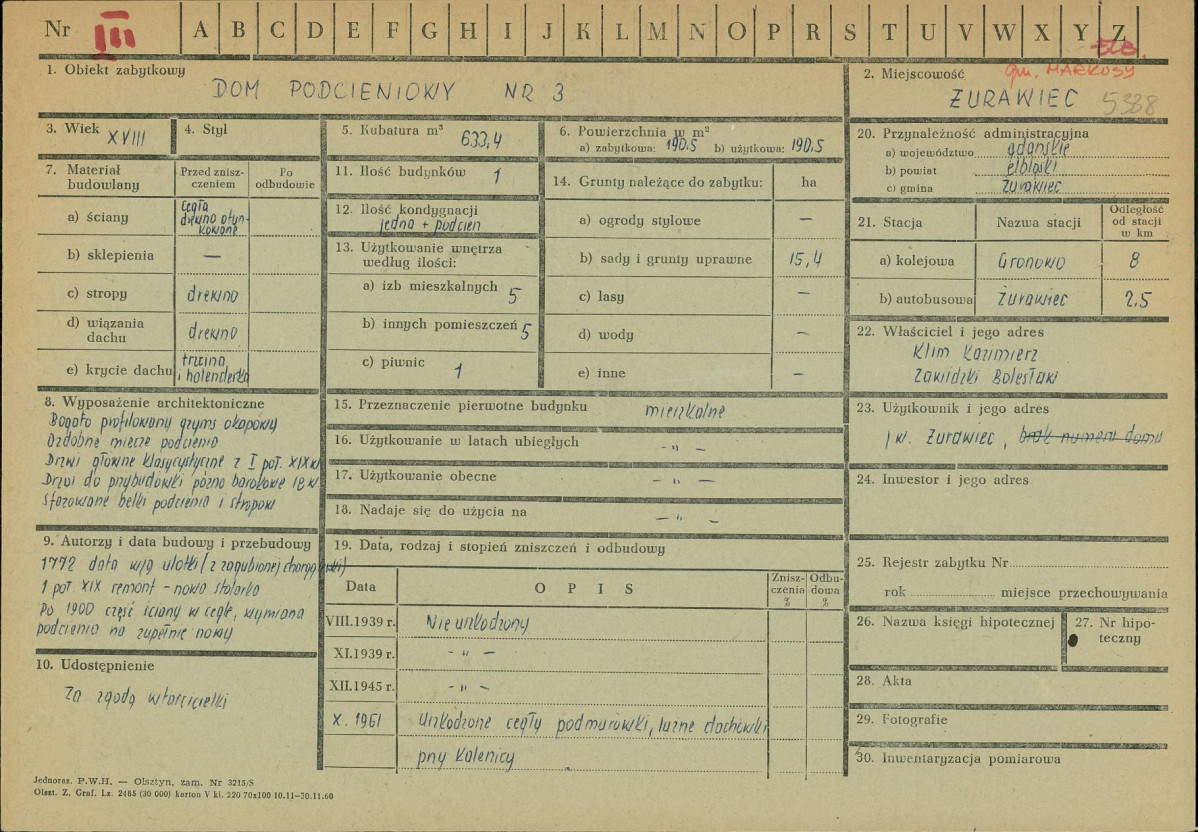 Nr III A B C D E F G H I J K L M N O P R S T U V W X Y Z
1. Obiekt zabytkowy
DOM PODCIENIOWY NR 3
2. Miejscowość
gm. MARKUSY
ŻURAWIEC 5338
3. Wiek XVIII
4. Styl
5. Kubatura m³ 633,4
6. Powierzchnia w m²
a) zabytkowa: 190.5 b) użytkowa: 190,5
7. Materiał budowlany
Przed zniszczeniem
Po odbudowie
a) ściany
cegła
drewno otyn-
kowane
b) sklepienia —
c) stropy drewno
d) wiązania dachu drewno
e) krycie dachu
trzcina
i holenderka
8. Wyposażenie architektoniczne
Bogato profilowany gzyms okapowy
Ozdobne miecze podcienia
Drzwi główne klasycystyczne z I poł. XIX w
Drzwi do przybudówki późno barokowe 18 w.
Sfazowane belki podcienia i stropów
9. Autorzy i data budowy i przebudowy
1772 data w/g ulotki (z zagubionej chorągiewki)
1 poł XIX remont – nowa stolarka
Po 1900 część ściany w cegle, wymiana
podcienia na zupełnie nowy
10. Udostępnienie
Za zgodą właścicielki
11. Ilość budynków 1
12. Ilość kondygnacji
jedna + podcien
13. Użytkowanie wnętrza
według ilości:
a) izb mieszkalnych 5
b) innych pomieszczeń 5
c) piwnic 1
14. Grunty należące do zabytku: ha
a) ogrody stylowe —
b) sady i grunty uprawne 15,4
c) lasy —
d) wody —
e) inne —
15. Przeznaczenie pierwotne budynku mieszkalne
16. Użytkowanie w latach ubiegłych — " —
17. Użytkowanie obecne — " —
18. Nadaje się do użycia na — " —
19. Data, rodzaj i stopień zniszczeń i odbudowy
Data
O P I S
Zniszczenia %
Odbudowa %
VIII.1939 r. Nieuszkodzony
XI.1939 r. - " —
XII.1945 r. - " -
X. 1961 Uszkodzone cegły podmurówki, luźne dachówki
pny Kalenicy
20. Przynależność administracyjna
a) województwo gdańskie
b) powiat elbląski
c) gmina Żurawiec
21. Stacja
Nazwa stacji
Odległość od stacji w km
a) kolejowa Gronowo 8
b) autobusowa Żurawiec 2.5
22. Właściciel i jego adres
Klim Kazimierz
Zawidzki Bolesław
23. Użytkownik i jego adres
jw. Żurawiec, brak numeru domu
24. Inwestor i jego adres
25. Rejestr zabytku Nr
rok miejsce przechowywania
26. Nazwa księgi hipotecznej
27. Nr hipo-
teczny
28. Akta
29. Fotografie
30. Inwentaryzacja pomiarowa
Jednoraz. P.W.H. — Olsztyn, zam. Nr 3215/S
Olszt. Z. Graf. Lz. 2485 (30 000) karton V kl. 220 70x100 10.11—30.11.60